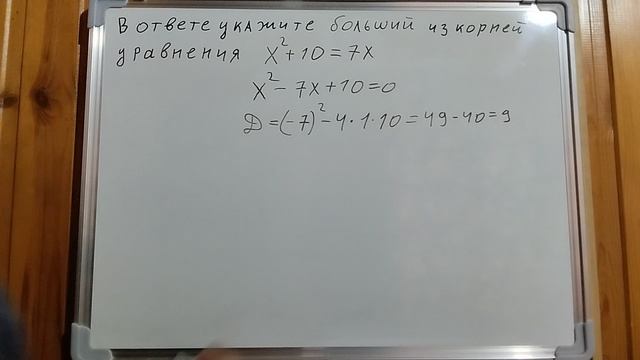 В ответе укажите больший из корней
уравнения x²+10=7x
x²-7x+10=0
D=(-7)²-4·1·10=49-40=9